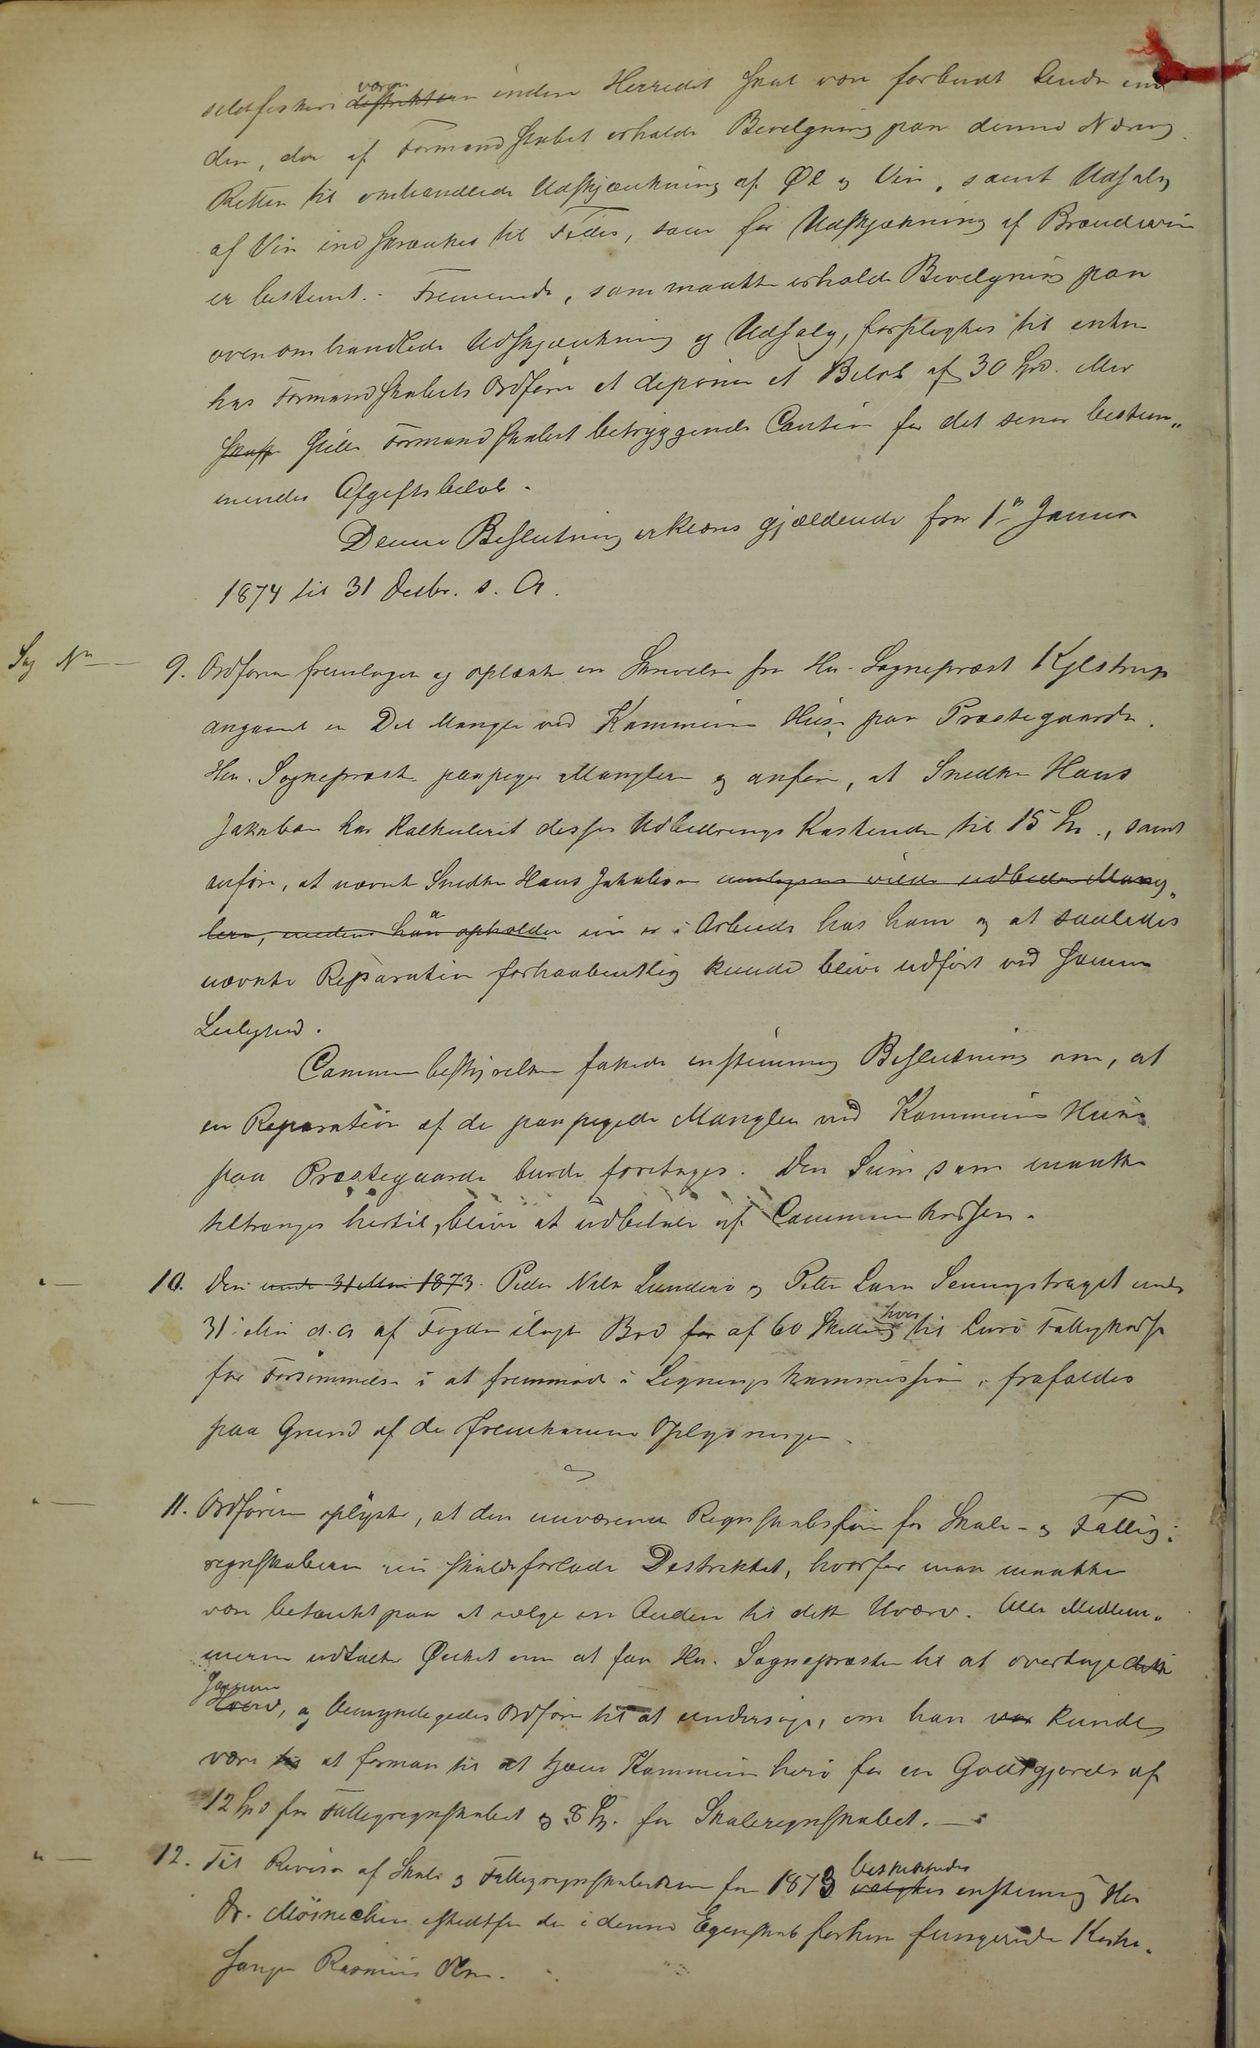 sildfiskeri været distrikter inden Herredet skal være forbudt Andre end
den, der af Formandskabet erholde Bevilgning paa denne Næring.
Retten til omhandlede Udskjænkning af Øl og Vin, samt Udsalg
af Vin indskrænkes til Tider, som for Udskjænkning af Brændeviin
er bestemt. - Fremmede, som maatte erholde Bevilgning paa
ovenomhandlede Udskjænkning og Udsalg, forpligtes til enten
hos Formandskabets Ordfører at deponere et Beløb af 30 Spd. eller
skaffe stille Formandskabet betryggende Caution for det senere bestem„
mendes Afgiftsbeløb.
Denne Beslutning erklæres gjældende fra 1ste Januar
1874 til 31 Decbr. s. A.
Sag No — 9. Ordføreren fremlagde og oplæste en Skrivelse fra Hr. Sogneprest Kjelstrup
angaaende en Del Mangler ved Kommunens Huse paa Præstegaarden.
Hr. Sogneprest paapeger Manglene og anfører, at Snedker Hans
Jakobsen har kalkuleret desses Udbedrings Kostende til 15 Spd., samt
anfører, at nævnte Snedker Hans Jakobsen muligens vilde udbedre Mang„
lerne, medens han opholder nu er i Arbeide hos ham og at saaledes
nævnte Reparation forhaabentlig kunde blive udført ved samme
Leilighed.
Communebestyrelsen fattede enstemmig Beslutning om, at
en Reparation af de paapegede Mangler ved Kommunens Huse
paa Præstegaarden burde foretages. Den Sum som maatte
tiltrænges hertil, bliver at udbetale af Communekassen.
" — 10. Den under 31 Mai 1873. Peder Nilsen Lunderø og Peter Larsen Senningstraget under
31 Mai d. A. af Fogden ilagte Bod for af 60 Skilling hver til Lurø Fattigkasse
for Forsømmelse i at fremmøde i Ligningskommissionen, frafaldes
paa Grund af de fremkomne Oplysninger.
" — 11. Ordføreren oplyste, at den nuværende Regnskabsfører for Skole- og Fattig:
regnskaberne nu skulde forlade Destriktet, hvorfor man maatte
være betænkt paa at vælge en Anden til dette Hværv. Alle Medlem„
merne udtalte Ønsket om at faa Hr. Sognepresten til at overtage dette
Samme Hværv, og bemyndigedes Ordfører til at undersøge, om han var kunde
være til at formaa til at tjene Kommunen heri for en Godtgjørelse af
12 Spd for Fattigregnskabet og 8 Sp. for Skoleregnskabet. —
" — 12. Til Revisor af Skole og Fattigregnskaberne for 1873 beskikkedes vælgtes enstemmig Her
Dr. Møinechen istedetfor den i denne Egenskab forhen fungerende Kirke„
sanger Rasmus Olsen.